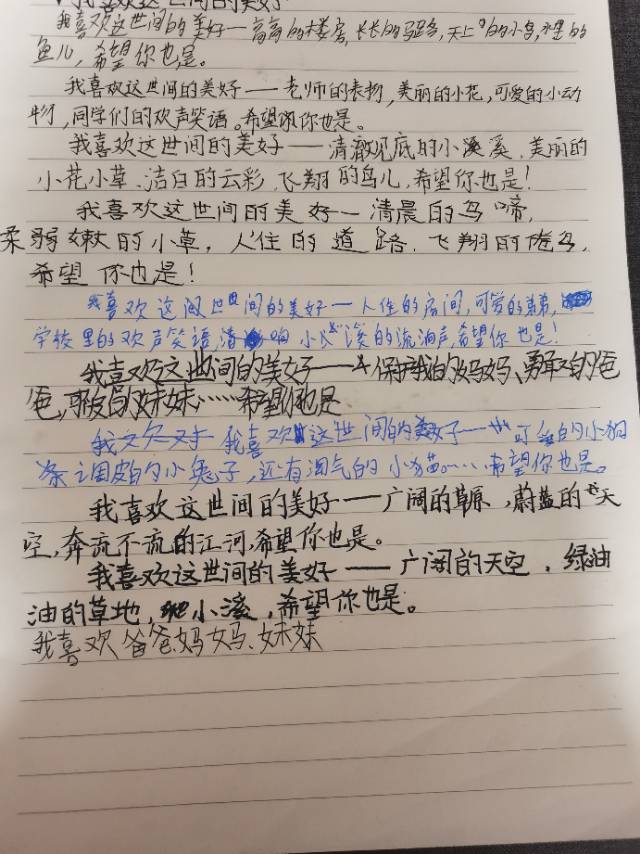 我喜欢这世间的美好
我喜欢这世间的美好一高高的楼房,长长的马路,天上的小鸟,水里的
鱼儿,希望你也是。
我喜欢这世间的美好——老师的表扬,美丽的小花,可爱的小动
物,同学们的欢声笑语。希望你也是。
我喜欢这世间的美好——清澈见底的小溪,美丽的
小花小草.洁白的云彩.飞翔的鸟儿,希望你也是!
我喜欢这世间的美好一清晨的鸟啼,
柔弱嫩的小草,人住的道路.飞翔的鸟,
希望你也是!
我喜欢这世间的美好一人住的房间,可爱的弟弟,
学校里的欢声笑语,清响小溪的流淌声,希望你也是!
我喜欢这世间的美好——保护我的妈妈、勇敢的爸
爸,可爱的妹妹……希望你也是
我喜欢这世间的美好一可爱的小狗
调皮的小兔子,还有淘气的小猫……希望你也是。
我喜欢这世间的美好——广阔的草原,蔚蓝的天
空,奔流不流的江河,希望你也是。
我喜欢这世间的美好——广阔的天空.绿油
油的草地,小溪,希望你也是。
我喜欢爸爸妈妈、妹妹